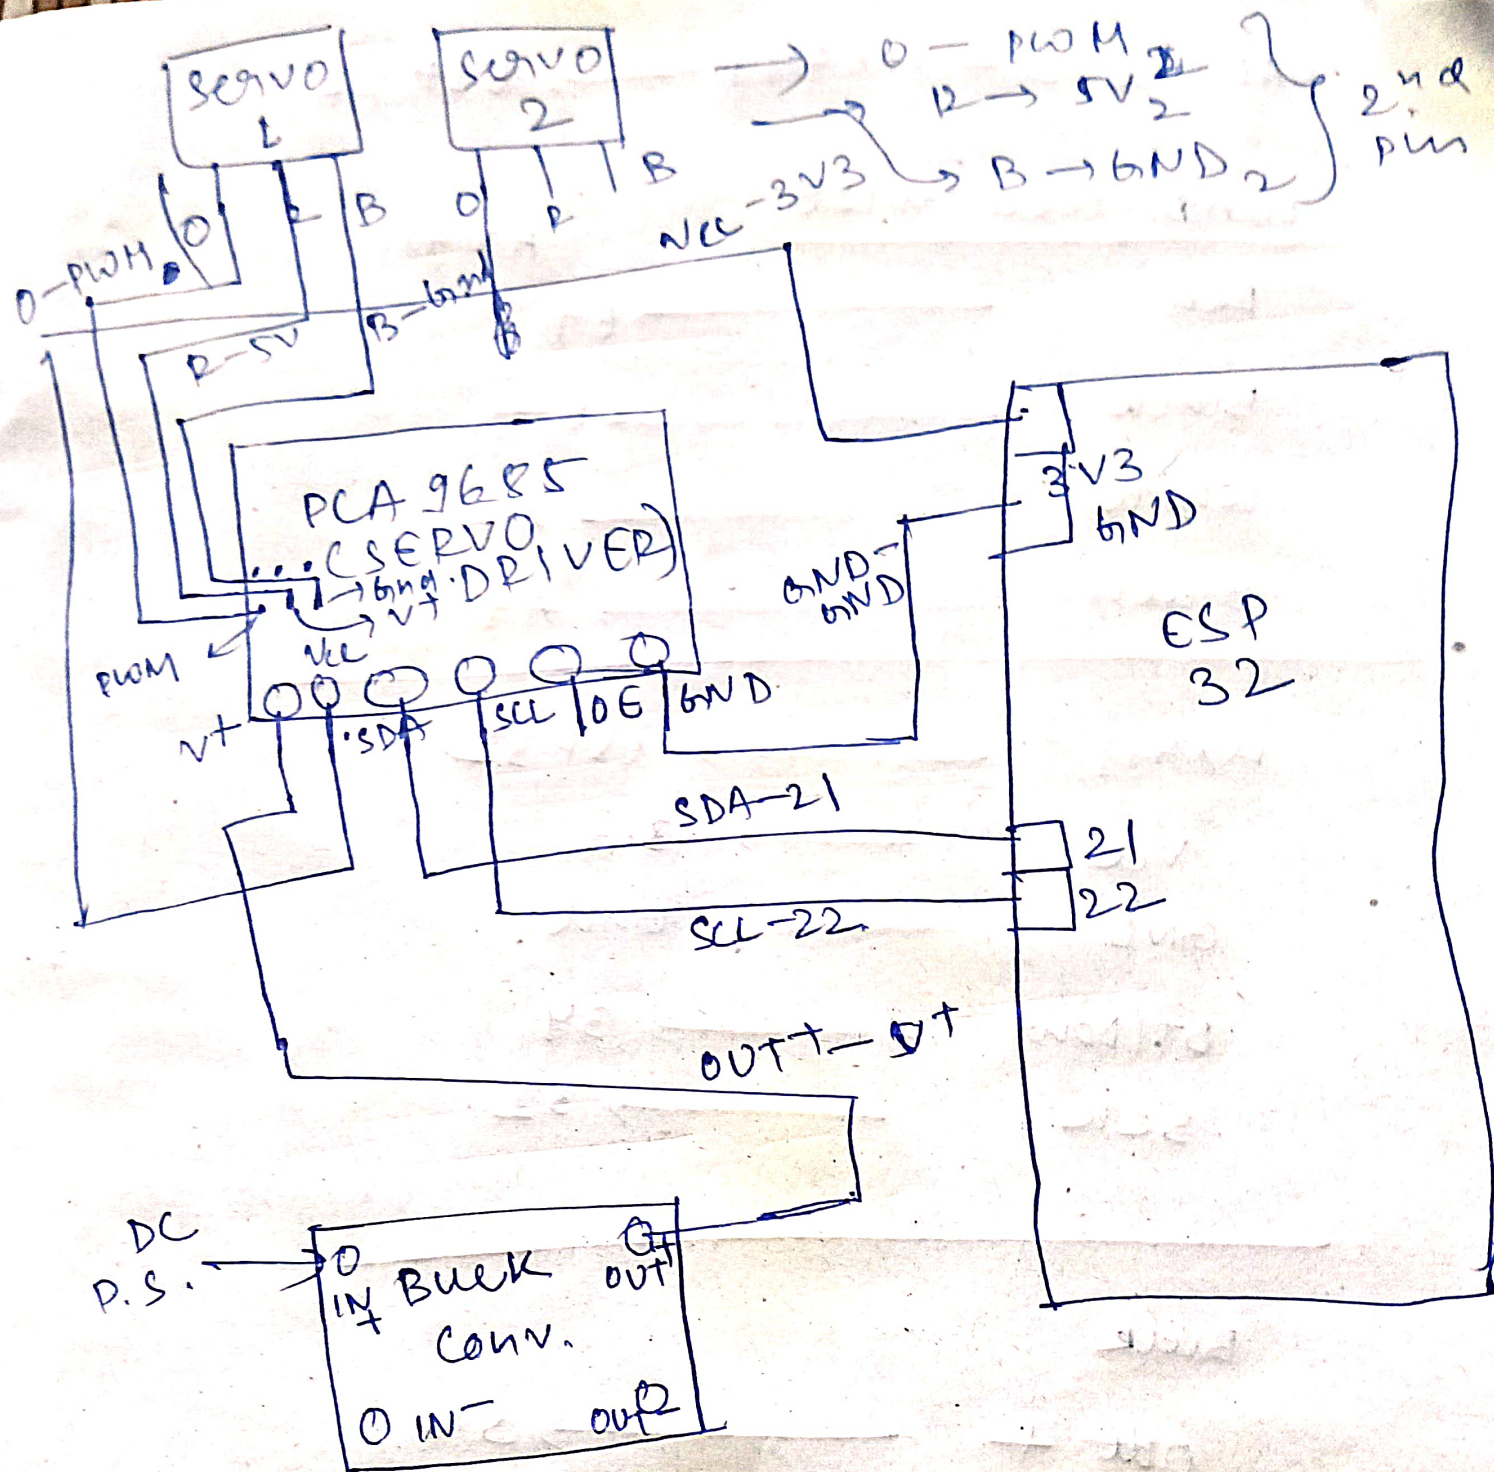 servo
1
servo
2
O - PWM 2
R → 5V 2
B → GND 2
2nd
pin
O
R
B
O
R
B
VCC - 3V3
O-PWM
R-5V
B-Gnd
PCA 9685
(SERVO
DRIVER)
→ Gnd
→ V+
PWM
VCC
V+
SDA
SCL
OE
GND
3V3
GND
GND-
GND
ESP
32
SDA-21
21
22
SCL-22
OUT+ - V+
DC
P.S.
IN
+
Buck
Conv.
OUT+
IN-
OUT-